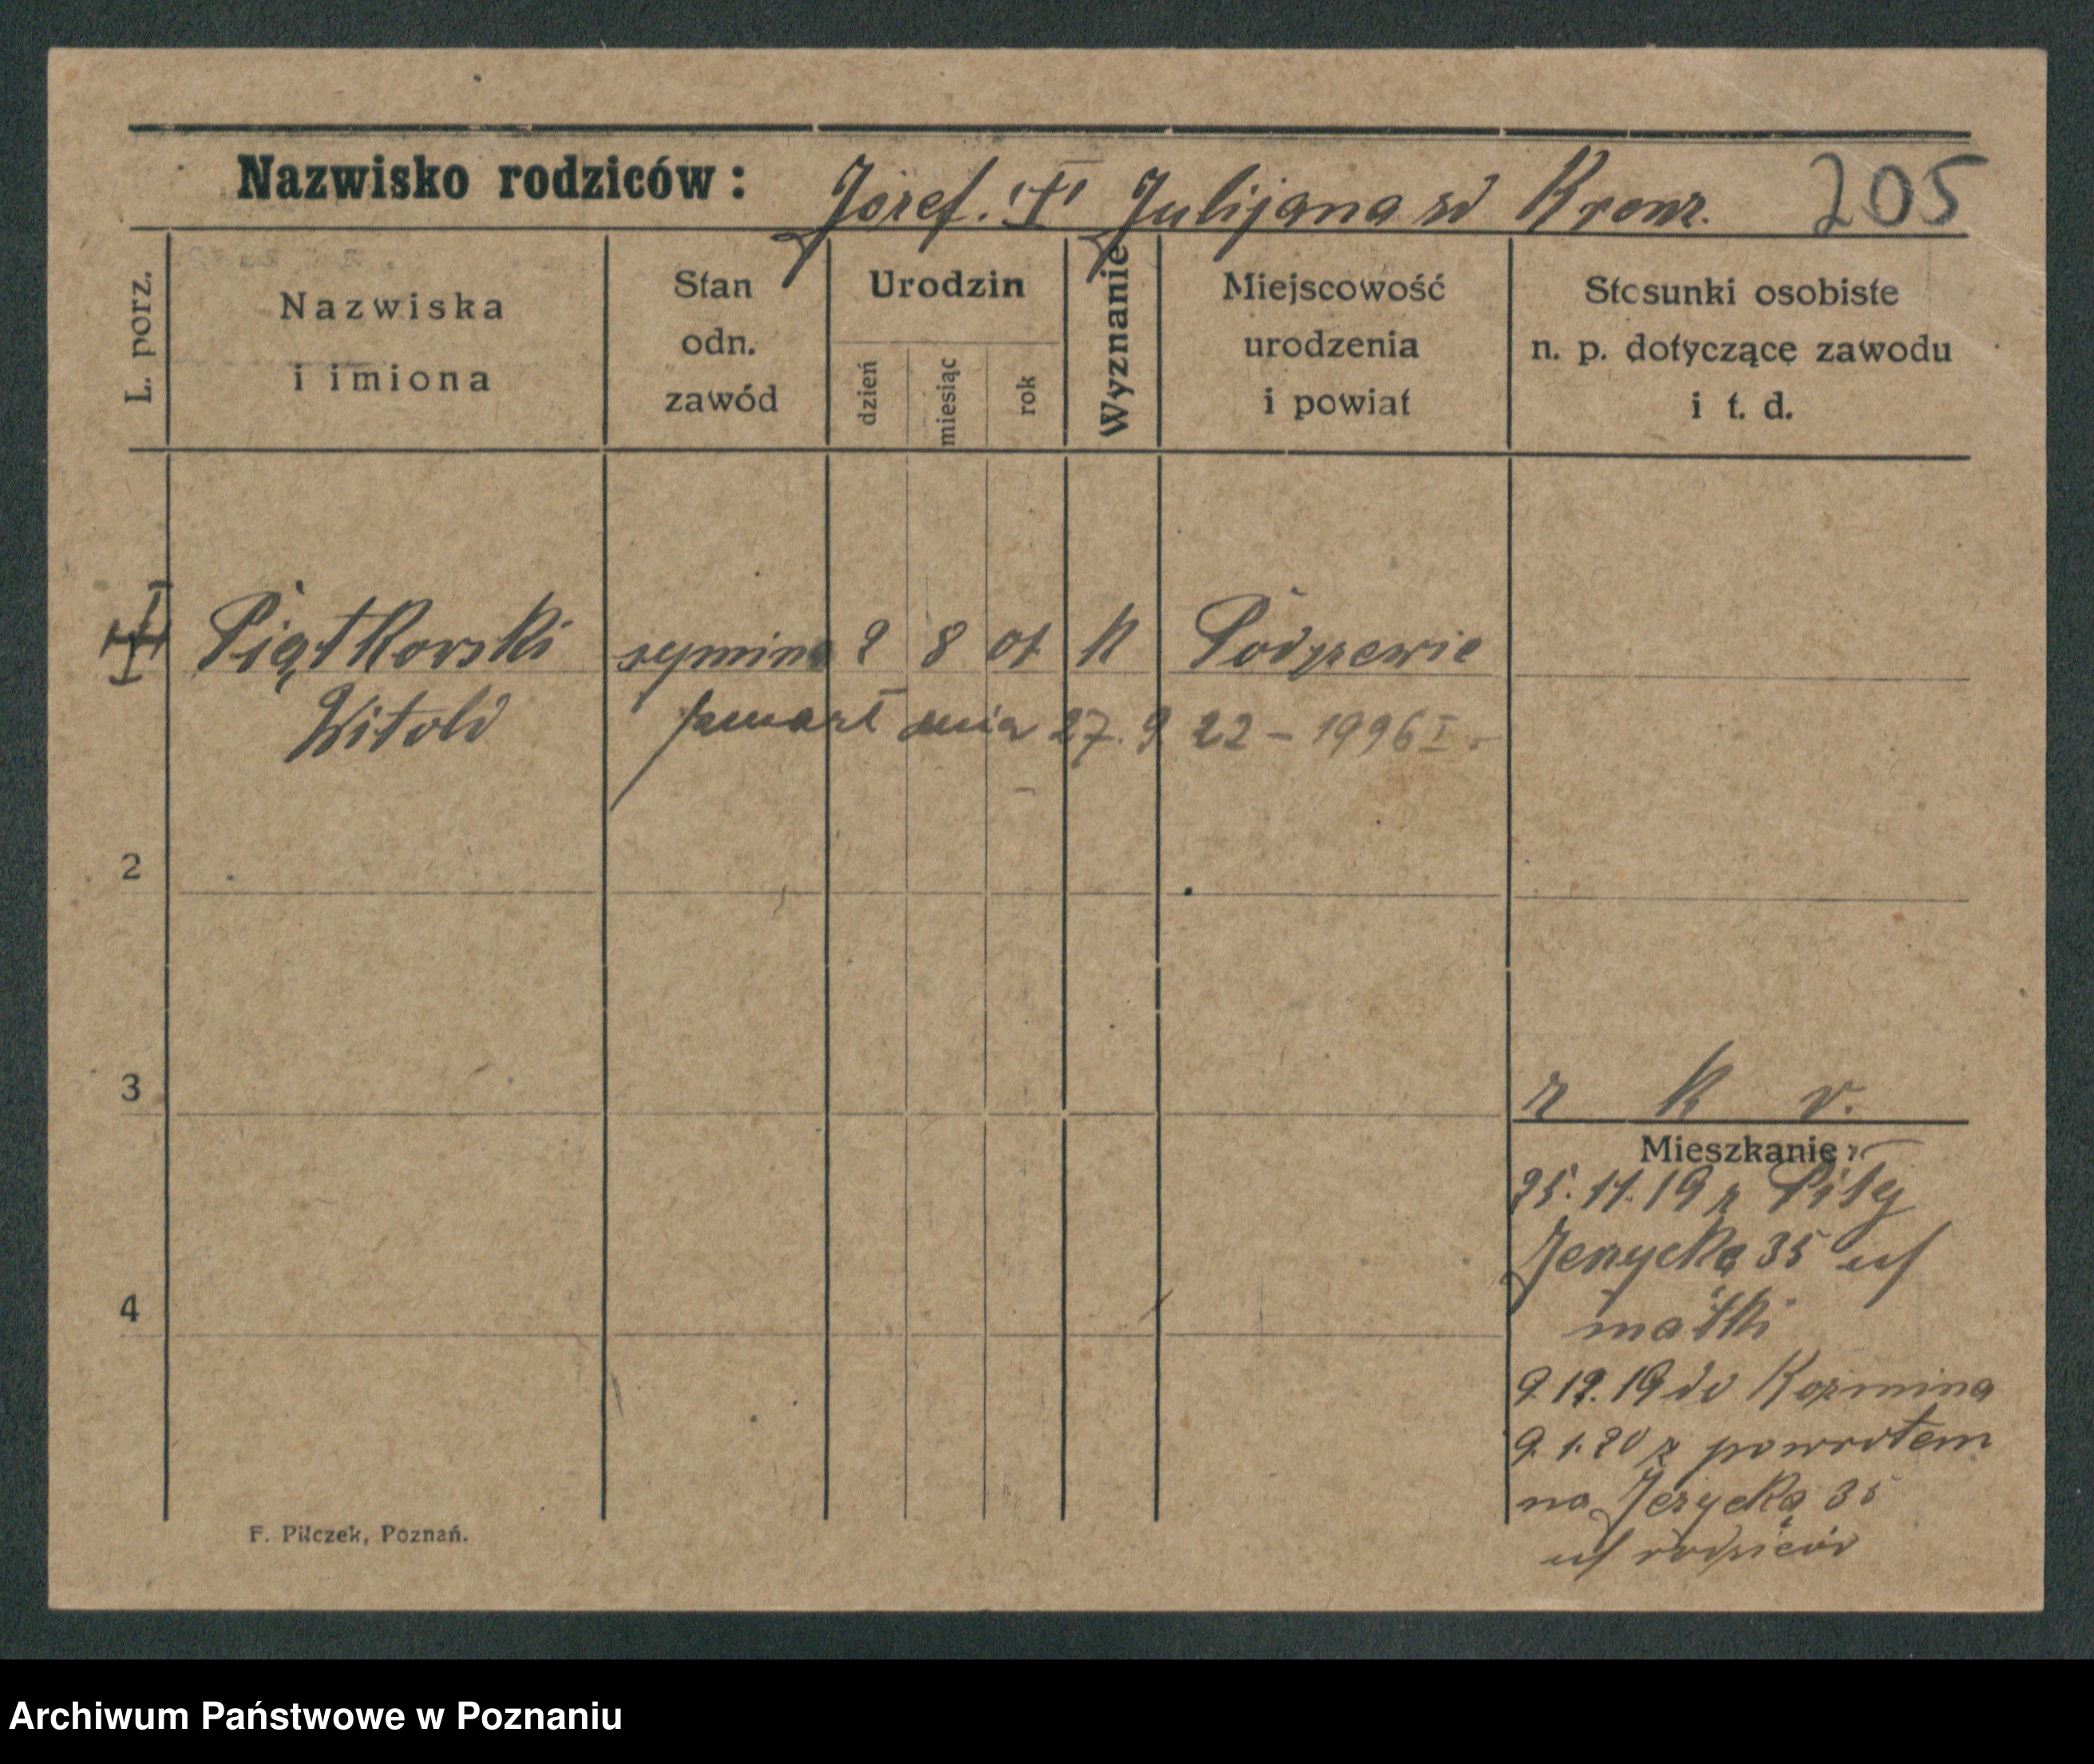 Nazwisko rodziców: Józef. Julijana zd Kronz. 205
L. porz.
Nazwiska
i imiona
Stan
odn.
zawód
Urodzin
dzień
miesiąc
rok
Wyznanie
Miejscowość
urodzenia
i powiat
Stosunki osobiste
n. p. dotyczące zawodu
i t. d.
Piątkowski 2 8 01 K
Witold
zmarł dnia 27. 9 22 - 1996 I.
2
3
4
r k v.
Mieszkanie:
25. 11. 19 z Piły
Jerzycka 35 u/
matki
9 12. 19 do Kozmina
9. 1. 20 z powrotem
na Jerzycką 35
u/ rodziców
F. Pilczek, Poznań.
Archiwum Państwowe w Poznaniu